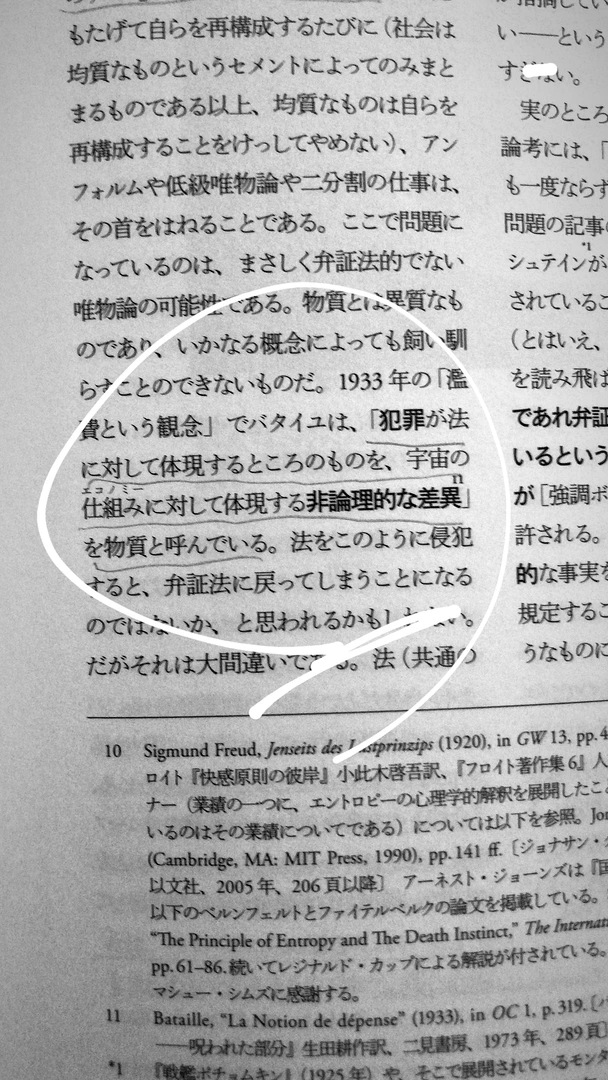 もたげて自らを再構成するたびに（社会は
均質なものというセメントによってのみまと
まるものである以上、均質なものは自らを
再構成することをけっしてやめない）、アン
フォルムや低級唯物論や二分割の仕事は、
その首をはねることである。ここで問題に
なっているのは、まさしく弁証法的でない
唯物論の可能性である。物質とは異質なも
のであり、いかなる概念によっても飼い馴
らすことのできないものだ。1933 年の「濫
費という観念」でバタイユは、「犯罪が法
に対して体現するところのものを、宇宙の
エコノミー
仕組みに対して体現する非論理的な差異」
n
を物質と呼んでいる。法をこのように侵犯
すると、弁証法に戻ってしまうことになる
のではないか、と思われるかもしれない。
だがそれは大間違いである。法（共通の
い——という
すぎない。
実のところ
論考には、「
も一度ならず
問題の記事の
*1
シュテインが
されているこ
（とはいえ、
を読み飛ば
であれ弁証
いるという
が［強調ボ
許される。
的な事実を
規定するこ
うなものに
10 Sigmund Freud, Jenseits des Lustprinzips (1920), in GW 13, pp. 4
ロイト『快感原則の彼岸』小此木啓吾訳、『フロイト著作集 6』人
ナー（業績の一つに、エントロピーの心理学的解釈を展開したこ
いるのはその業績についてである）については以下を参照。Jon
(Cambridge, MA: MIT Press, 1990), pp. 141 ff.［ジョナサン・
以文社、2005 年、206 頁以降］ アーネスト・ジョーンズは『国
以下のベルンフェルトとファイテルベルクの論文を掲載している。
“The Principle of Entropy and The Death Instinct,” The Internat
pp. 61–86. 続いてレジナルド・カップによる解説が付されている。
マシュー・シムズに感謝する。
11 Bataille, “La Notion de dépense” (1933), in OC 1, p. 319.［バ
——呪われた部分』生田耕作訳、二見書房、1973 年、289 頁
*1 『戦艦ポチョムキン』（1925 年）や、そこで展開されているモンタ